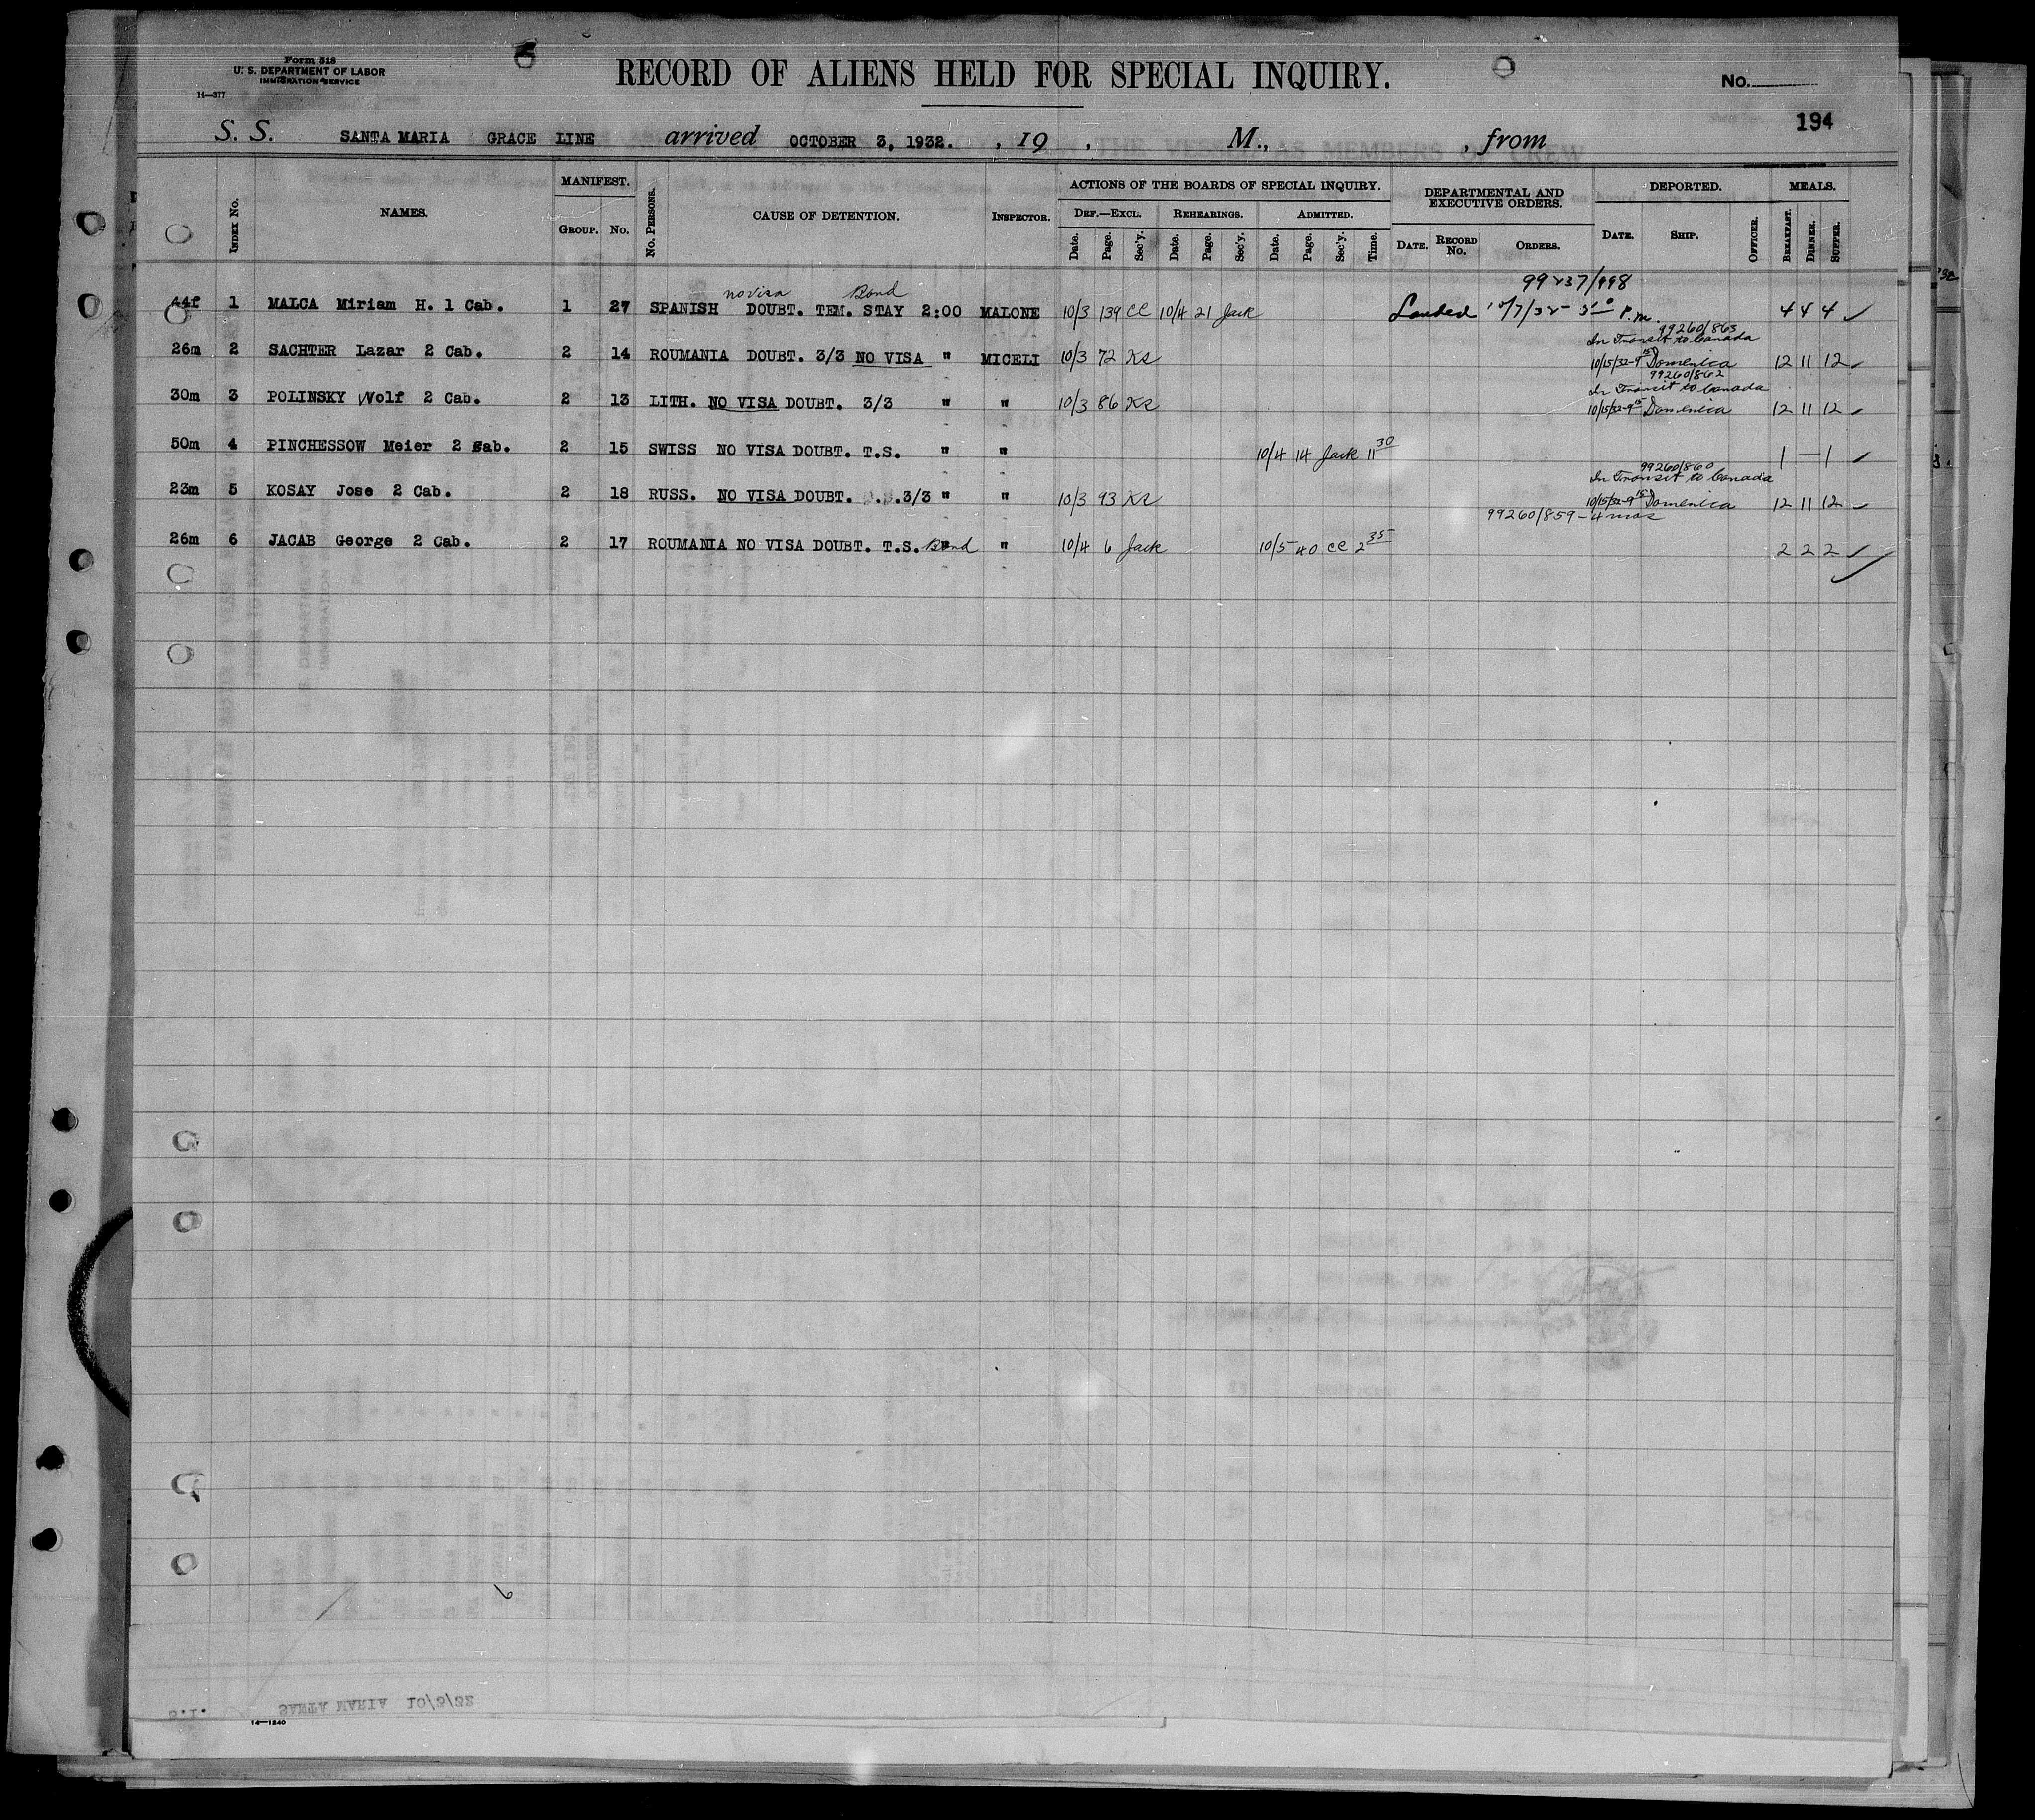 Form 518
U. S. DEPARTMENT OF LABOR
IMMIGRATION SERVICE
14—377
RECORD OF ALIENS HELD FOR SPECIAL INQUIRY.
No.
194
S. S. SANTA MARIA GRACE LINE arrived OCTOBER 3, 1932. , 19 , M., , from
INDEX No. NAMES. MANIFEST. GROUP. No. No. PERSONS. CAUSE OF DETENTION. INSPECTOR. ACTIONS OF THE BOARDS OF SPECIAL INQUIRY. DEPARTMENTAL AND EXECUTIVE ORDERS. DEPORTED. MEALS.
DEF.—EXCL. REHEARINGS. ADMITTED.
Date. Page. Sec'y. Date. Page. Sec'y. Date. Page. Sec'y. Time. DATE. RECORD No. ORDERS. DATE. SHIP. OFFICER. BREAKFAST. DINNER. SUPPER.
no visa Bond
44f 1 MALCA Miriam H. 1 Cab. 1 27 SPANISH DOUBT. TEM. STAY 2:00 MALONE 10/3 139 CC 10/4 21 Jack Landed 10/7/32 P.m. 4 4 4
99260/863
In Transit to Canada
26m 2 SACHTER Lazar 2 Cab. 2 14 ROUMANIA DOUBT. 3/3 NO VISA " MICELI 10/3 72 KR 10/15/32-9 15 Domenica 12 11 12
99260/862
In Transit to Canada
30m 3 POLINSKY Wolf 2 Cab. 2 13 LITH. NO VISA DOUBT. 3/3 " " 10/3 86 KR 10/15/32-9 15 Domenica 12 11 12
50m 4 PINCHESSOW Meier 2 Cab. 2 15 SWISS NO VISA DOUBT. T.S. " " 10/4 14 Jack 11 30 1 — 1
99260/860
In Transit to Canada
23m 5 KOSAY Jose 2 Cab. 2 18 RUSS. NO VISA DOUBT. 3/3 " " 10/3 93 KR 10/15/32-9 15 Domenica 12 11 12
99260/859 - 4 mos
26m 6 JACAB George 2 Cab. 2 17 ROUMANIA NO VISA DOUBT. T.S. Bond " " 10/4 6 Jack 10/5 40 CC 2 35 2 2 2
S.I. SANTA MARIA 10/3/32
14—1240